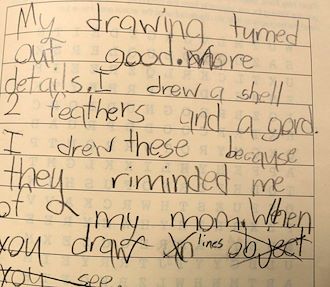 My drawing turned
out good. More
details. I drew a shell
2 feathers and a gord.
I drew these because
they riminded me
of my mom. When
you draw lines